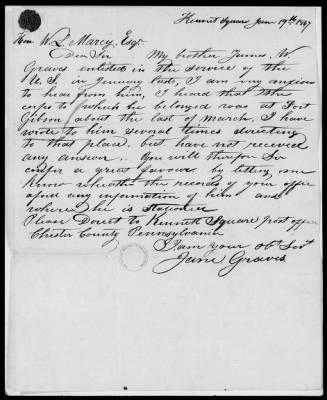 Kennet Square June 19th 1847
Hon. W. L. Marcy, Esqr.
Dear Sir My brother James W
Graves enlisted in the service of the
U.S. in January last, I am very anxious
to hear from him, I heard that the
corps to which he belonged was at Fort
Gibson about the last of March, I have
wrote to him several times directing
to that place, but have not received
any answer. You will therefor Sir
confer a great favour by letting me
know whether the records of your office
afford any information of him and
where he is stationed
Please Direct to Kennett Square post office
Chester County Pennsylvania
I am your obt Servt
Jane Graves